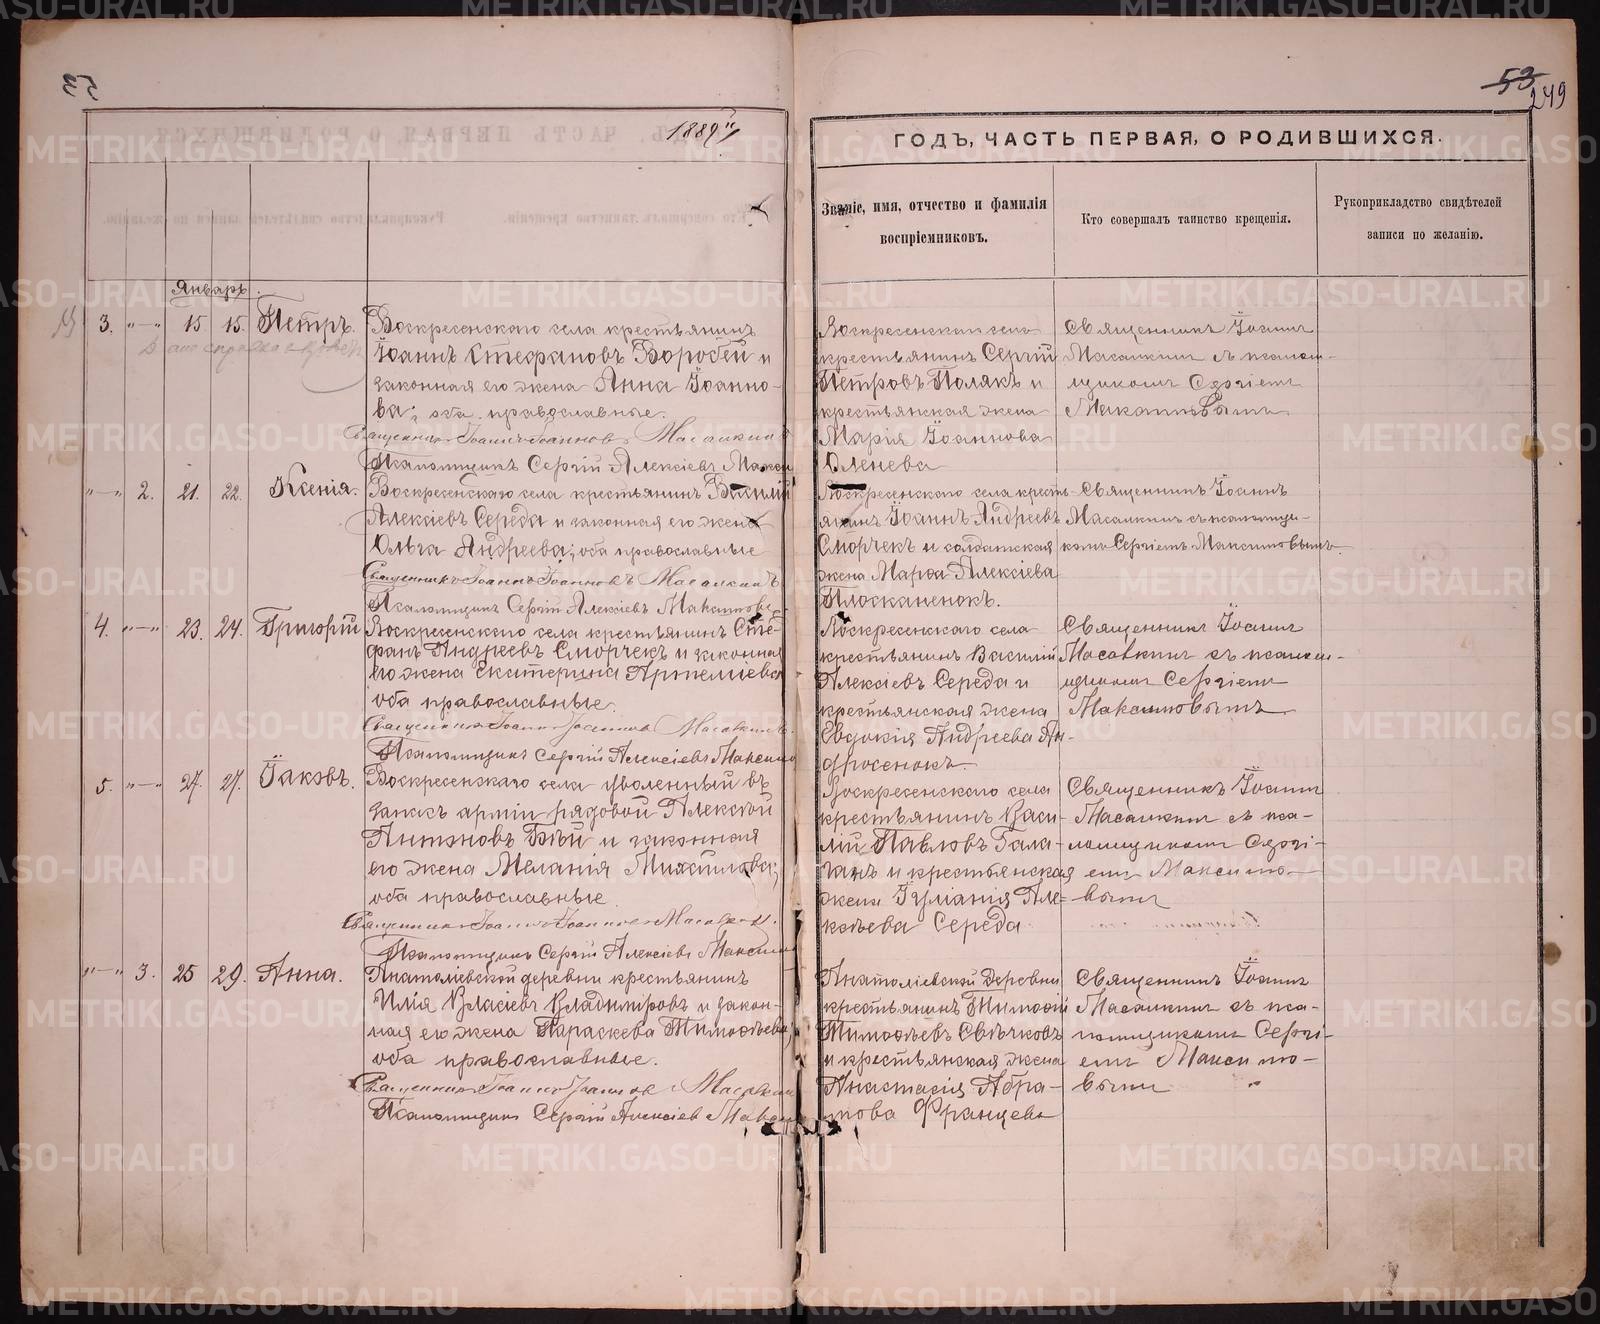 53
53
249
1889 г.
ГОДЪ, ЧАСТЬ ПЕРВАЯ, О РОДИВШИХСЯ.
Званіе, имя, отчество и фамилія
воспріемниковъ.
Кто совершалъ таинство крещенія.
Рукоприкладство свидѣтелей
записи по желанію.
Январь.
3. "—" 15 15. Петръ.
Воскресенскаго села крестьянинъ
Іоаннъ Стефановъ Воробей и
законная его жена Анна Іоанно-
ва; оба православные.
Священникъ Іоаннъ Іоанновъ Масалкинъ
Псаломщикъ Сергій Алексіевъ
Воскресенскаго села
крестьянинъ Сергій
Петровъ Полякъ и
крестьянская жена
Марія Іоаннова
Оленева
Священникъ Іоаннъ
Масалкинъ съ псалом-
щикомъ Сергіемъ
Максимовымъ
"—" 2. 21. 22. Ксенія.
Воскресенскаго села крестьянинъ Василій
Алексіевъ Середа и законная его жена
Ольга Андреева; оба православные
Священникъ Іоаннъ Іоанновъ Масалкинъ
Псаломщикъ Сергій Алексіевъ Максимовъ
Воскресенскаго села кресть-
янинъ Іоаннъ Андреевъ
Сморчекъ и солдатская
жена Марѳа Алексіева
Плосканенокъ.
Священникъ Іоаннъ
Масалкинъ съ псаломщи-
комъ Сергіемъ Максимовымъ
4. "—" 23. 24. Григорій
Воскресенскаго села крестьянинъ Сте-
фанъ Андреевъ Сморчекъ и законная
его жена Екатерина Артеміева
оба православные.
Священникъ Іоаннъ Іоанновъ Масалкинъ
Псаломщикъ Сергій Алексіевъ
Воскресенскаго села
крестьянинъ Василій
Алексіевъ Середа и
крестьянская жена
Евдокія Андреева Ан-
дросенокъ.
Священникъ Іоаннъ
Масалкинъ съ псалом-
щикомъ Сергіемъ
Максимовымъ
5. "—" 27. 27. Іаковъ.
Воскресенскаго села уволенный въ
запасъ арміи рядовой Алексѣй
Антоновъ Бѣй и законная
его жена Меланія Михаилова;
оба православные
Священникъ Іоаннъ Іоанновъ Масалкинъ.
Псаломщикъ Сергій Алексіевъ
Воскресенскаго села
крестьянинъ Васи-
лій Павловъ Гала-
ганъ и крестьянская
жена Іуліанія Але-
ксѣева Середа
Священникъ Іоаннъ
Масалкинъ съ пса-
ломщикомъ Сергі-
емъ Максимо-
вымъ
"—" 3. 25 29. Анна.
Анатоліевской деревни крестьянинъ
Илія Власіевъ Владиміровъ и закон-
ная его жена Параскева Тимоѳѣева,
оба православные.
Священникъ Іоаннъ Іоанновъ Масалкинъ
Псаломщикъ Сергій Алексіевъ
Анатоліевской деревни
крестьянинъ Тимоѳій
Тимоѳѣевъ Свѣчковъ
и крестьянская жена
Анастасія Абра-
мова Францева
Священникъ Іоаннъ
Масалкинъ съ пса-
ломщикомъ Сергі-
емъ Максимо-
вымъ
METRIKI.GASO-URAL.RU